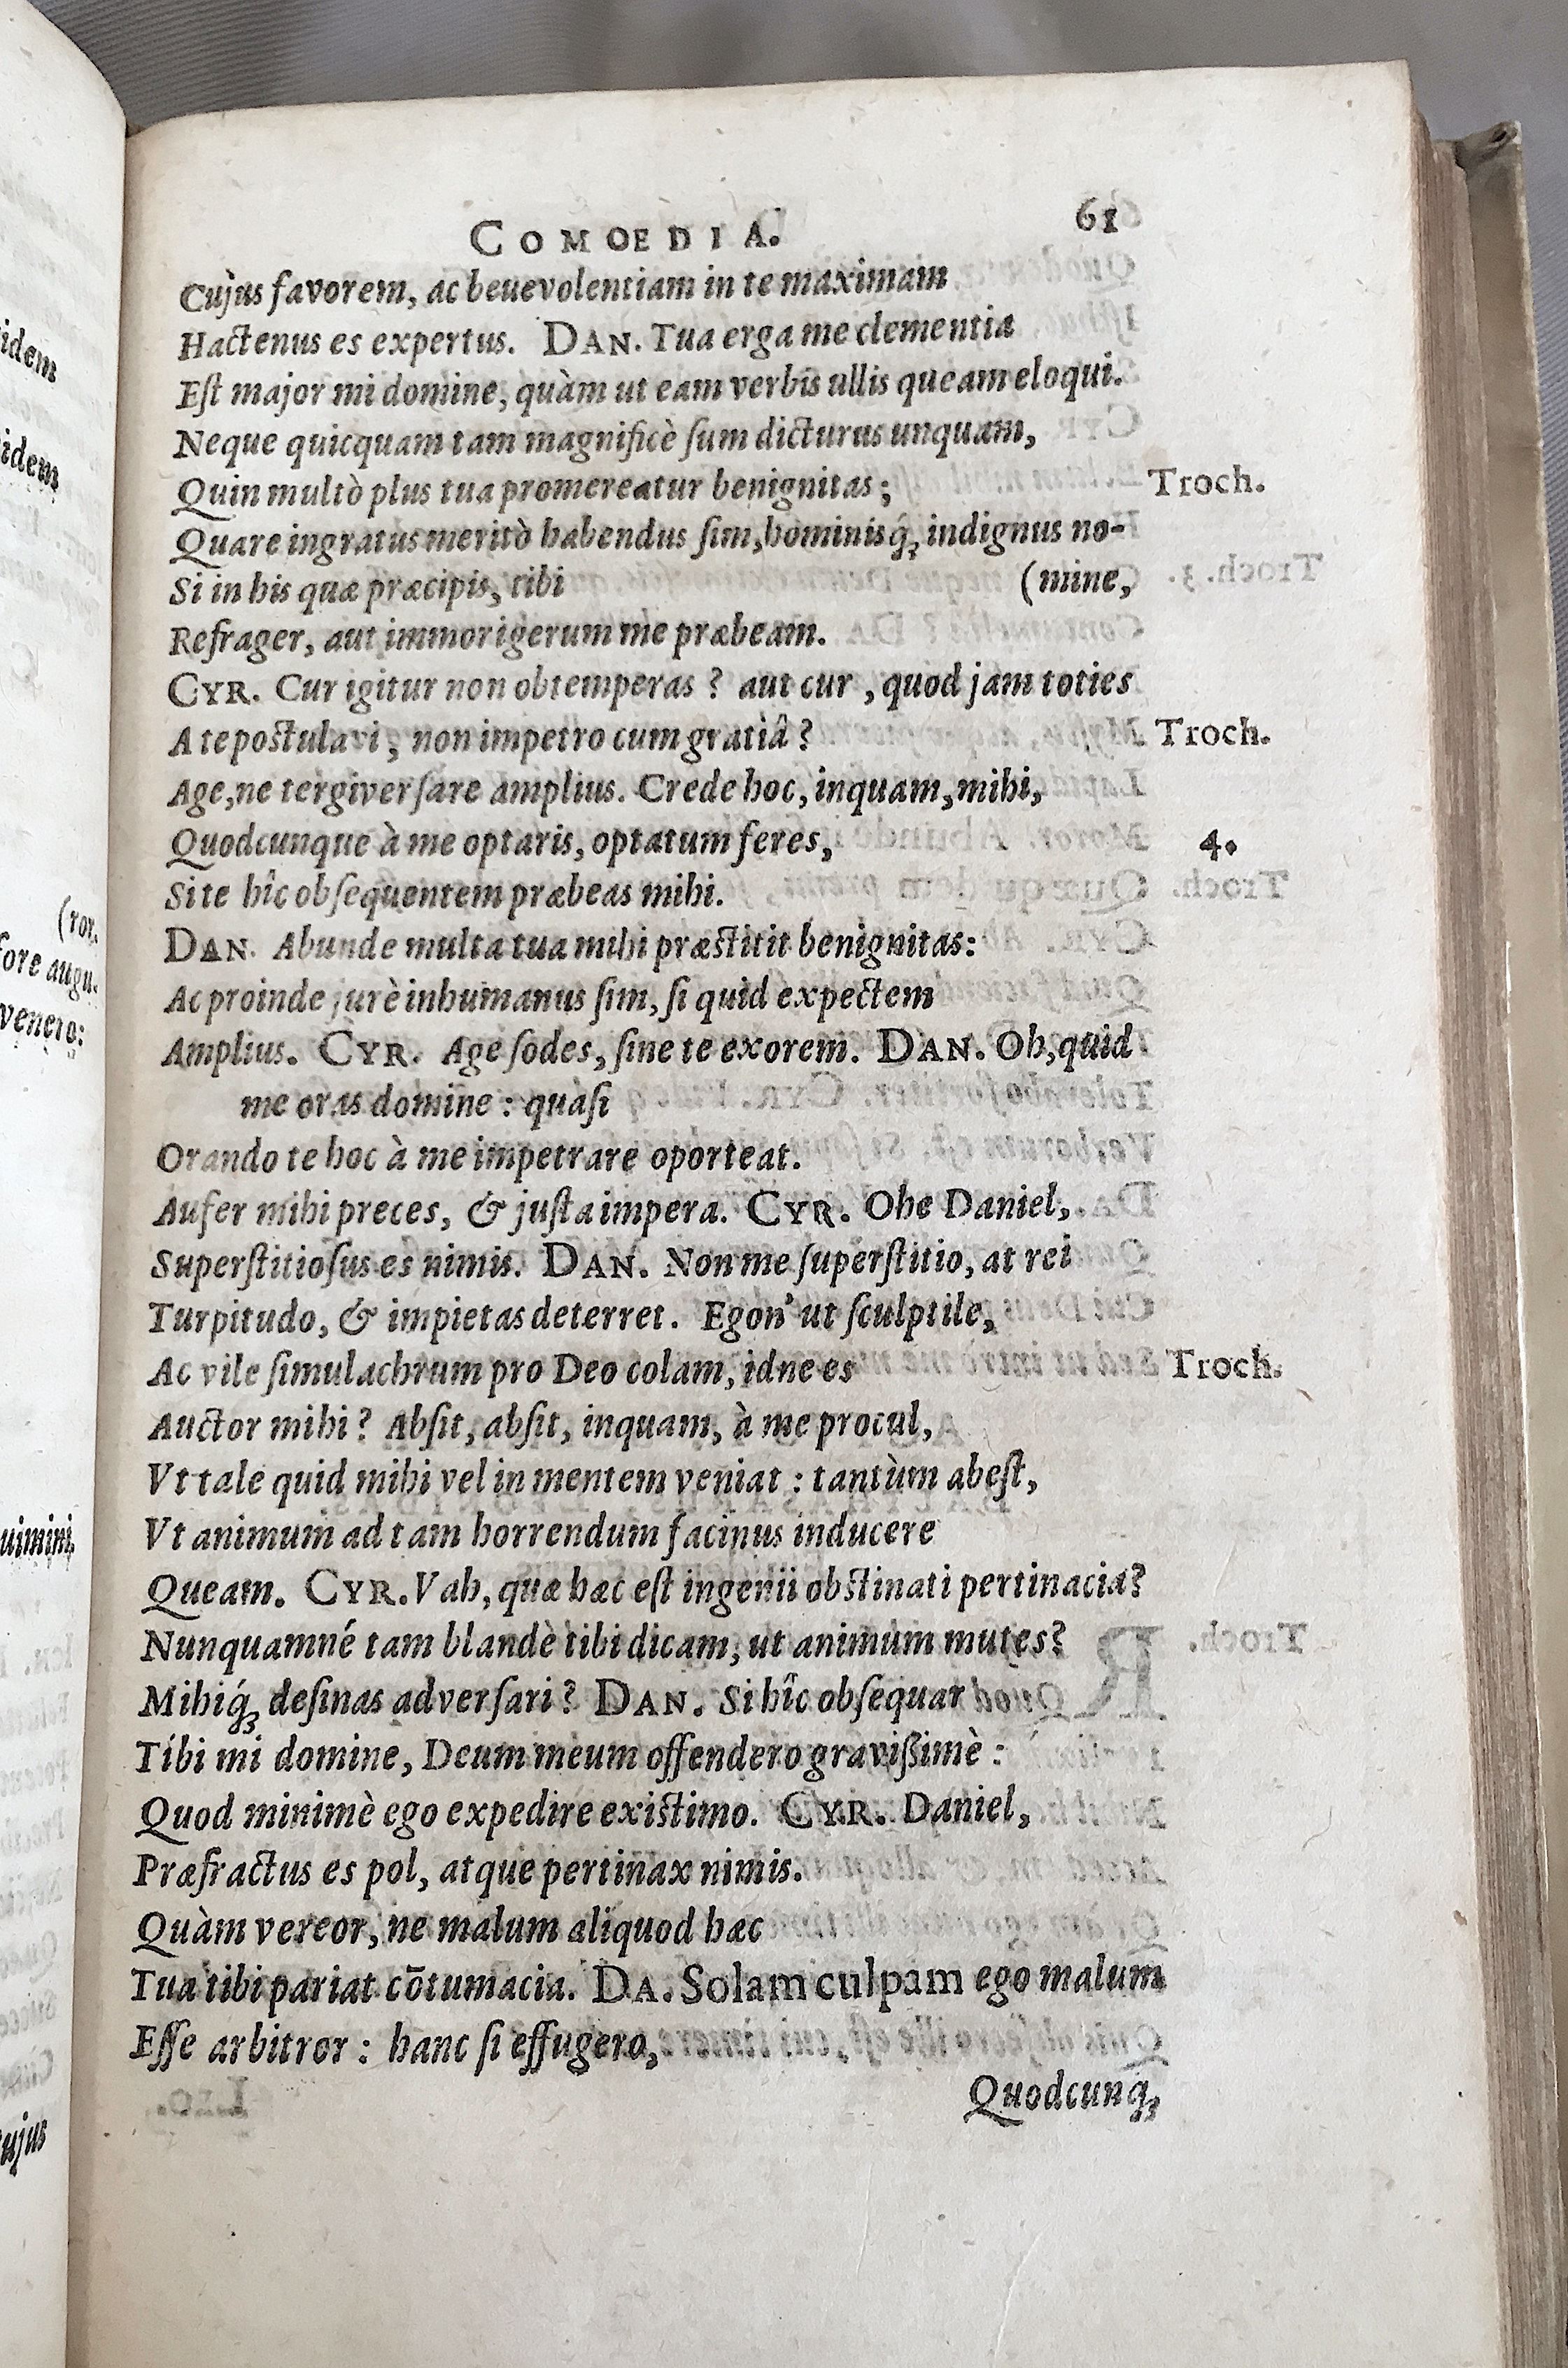 COMOEDIA. 61
Cujus favorem, ac beuevolentiam in te maximam
Hactenus es expertus. DAN. Tua erga me clementia
Est major mi domine, quàm ut eam verbis ullis queam eloqui.
Neque quicquam tam magnificè sum dicturus unquam,
Quin multò plus tua promereatur benignitas; Troch.
Quare ingratus meritò habendus sim, hominisq́; indignus no-
Si in his quæ præcipis, tibi (mine,
Refrager, aut immorigerum me præbeam.
CYR. Cur igitur non obtemperas? aut cur, quod jam toties
A te postulavi, non impetro cum gratiâ? Troch.
Age, ne tergiversare amplius. Crede hoc, inquam, mihi,
Quodcunque à me optaris, optatum feres, 4.
Si te hîc obsequentem præbeas mihi.
DAN. Abunde multa tua mihi præstitit benignitas:
Ac proinde jurè inhumanus sim, si quid expectem
Amplius. CYR. Age sodes, sine te exorem. DAN. Oh, quid
me oras domine: quàsi
Orando te hoc à me impetrare oporteat.
Aufer mihi preces, & justa impera. CYR. Ohe Daniel,
Superstitiosus es nimis. DAN. Non me superstitio, at rei
Turpitudo, & impietas deterret. Egon' ut sculptile,
Ac vile simulachrum pro Deo colam, idne es Troch.
Auctor mihi? Absit, absit, inquam, à me procul,
Vt tale quid mihi vel in mentem veniat: tantùm abest,
Vt animum ad tam horrendum facinus inducere
Queam. CYR. Vah, quæ hæc est ingenii obstinati pertinacia?
Nunquamné tam blandè tibi dicam, ut animum mutes?
Mihiq́; desinas adversari? DAN. Si hîc obsequar
Tibi mi domine, Deum meum offendero gravißimè:
Quod minimè ego expedire existimo. CYR. Daniel,
Præfractus es pol, atque pertinax nimis.
Quàm vereor, ne malum aliquod hæc
Tua tibi pariat cōtumacia. DA. Solam culpam ego malum
Esse arbitror: hanc si effugero,
Quodcunq́;